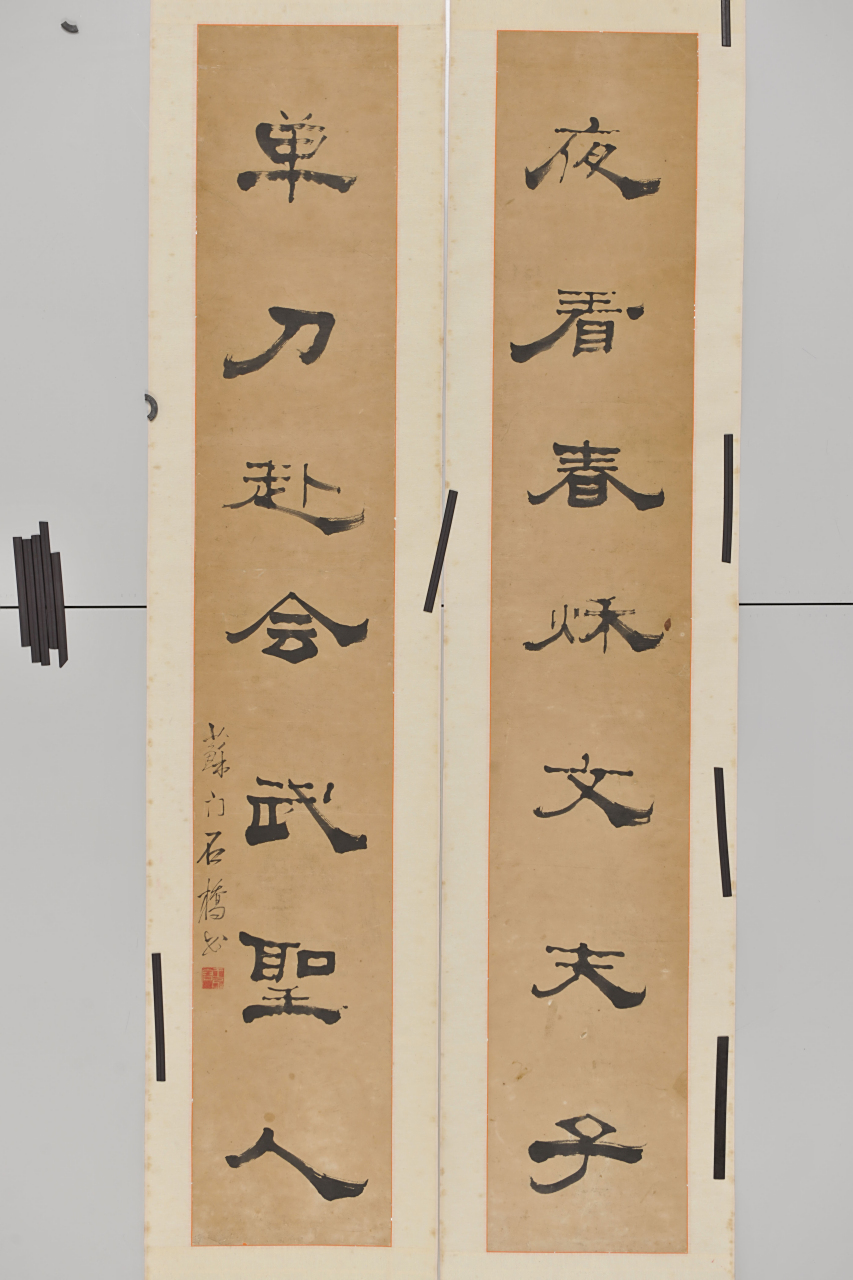 夜看春秌文夫子
单刀赴会武聖人
蘇门石橋书